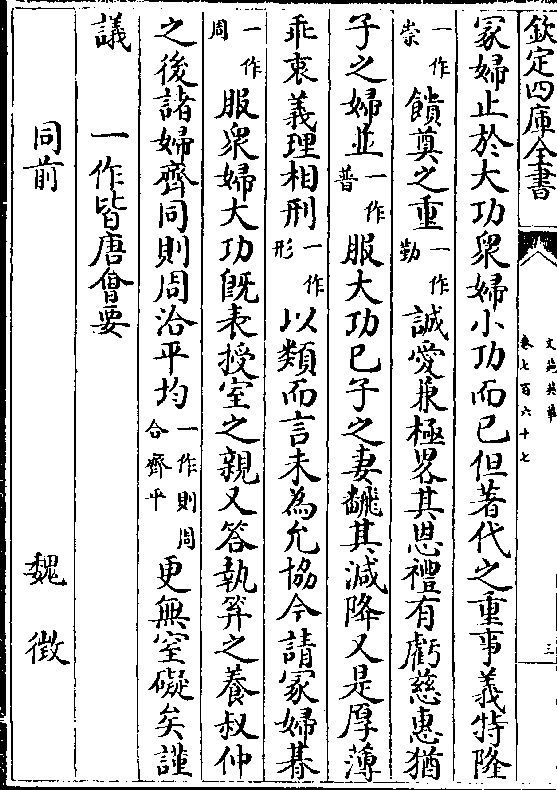 欽定四庫全書
文苑英華
卷七百六十七
三
冢婦止於大功衆婦小功而已但著代之重事義特隆
一作崇饋奠之重一作勤誠愛兼極畧其恩禮有虧慈惠猶
子之婦並一作普服大功已子之妻翻其減降又是厚薄
乖衷義理相刑一作形以類而言未為允協今請冢婦朞
一作周服衆婦大功既表授室之親又答執笲之養叔仲
之後諸婦齊同則周洽平均一作則周合齊平更無窒礙矣謹
議 一作皆唐會要
同前 魏徵